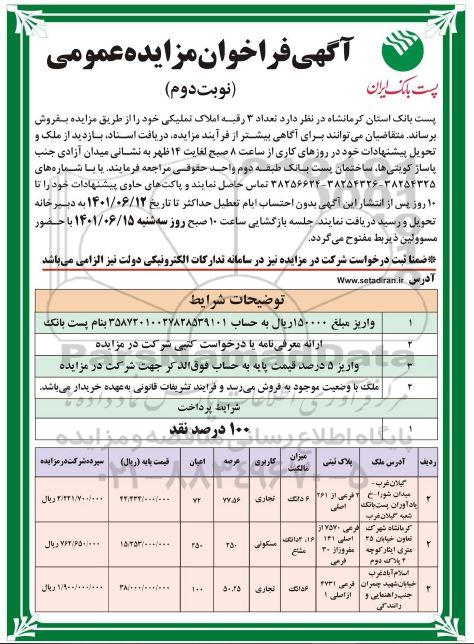 آگهی فراخوان مزایده عمومی
(نوبت دوم)
پست بانک ایران
پست بانک استان کرمانشاه در نظر دارد تعداد ۳ رقبه املاک تملیکی خود را از طریق مزایده بفروش
برساند. متقاضیان می‌توانند برای آگاهی بیشتر از فرآیند مزایده، دریافت اسناد، بازدید از ملک و
تحویل پیشنهادات خود در روزهای کاری از ساعت ۸ صبح لغایت ۱۴ ظهر به نشانی میدان آزادی جنب
پاساژ کویتی‌ها، ساختمان پست بانک طبقه دوم واحد حقوقی مراجعه فرمایند. یا با شماره‌های
۳۸۲۵۴۳۲۵-۳۸۲۵۴۳۲۶-۳۸۲۵۶۶۲۴ تماس حاصل نمایند و پاکت‌های حاوی پیشنهادات خود را تا
۱۰ روز پس از انتشار این آگهی بدون احتساب ایام تعطیل حداکثر تا تاریخ ۱۴۰۱/۰۶/۱۲ به دبیرخانه
تحویل و رسید دریافت نمایند. جلسه بازگشایی ساعت ۱۰ صبح روز سه‌شنبه ۱۴۰۱/۰۶/۱۵ با حضور
مسوولین ذیربط مفتوح می‌گردد.
*ضمنا ثبت درخواست شرکت در مزایده نیز در سامانه تدارکات الکترونیکی دولت نیز الزامی می‌باشد
آدرس www.setadiran.ir
توضیحات شرایط
۱ واریز مبلغ ۱۵۰۰۰۰۰ ریال به حساب ۳۵۸۷۲۰۱۰۰۲۷۸۲۸۵۳۹۱۰۱ بنام پست بانک
۲ ارائه معرفی‌نامه یا درخواست کتبی شرکت در مزایده
۳ واریز ۵ درصد قیمت پایه به حساب فوق‌الذکر جهت شرکت در مزایده
۴ ملک با وضعیت موجود به فروش می‌رسد و فرایند تشریفات قانونی به‌عهده خریدار می‌باشد.
شرایط پرداخت
۱ ۱۰۰ درصد نقد
ردیف آدرس ملک پلاک ثبتی میزان مالکیت کاربری عرصه اعیان قیمت پایه (ریال) سپرده شرکت در مزایده
۲ گیلان‌غرب- میدان شورا-خ یادآوران پست‌بانک شعبه گیلان‌غرب ۲ فرعی از ۲۶۱ اصلی ۶ دانگ تجاری ۷۷.۵۶ ۷۲ ۴۴,۴۳۴/۰۰۰/۰۰۰ ۲/۲۲۱/۷۰۰/۰۰۰ ریال
۲ کرمانشاه شهرک تعاون خیابان ۲۵ متری ایثار کوچه ۴ پلاک دوم فرعی ۷۵۷۰ از اصلی ۱۴۱ مفروز از ۳۰ فرعی ۱۶، ۴ دانگ مشاع مسکونی ۲۵۰ ۲۵۰ ۱۵/۲۵۳/۰۰۰/۰۰۰ ۷۶۲/۶۵۰/۰۰۰ ریال
۳ اسلام‌آبادغرب خیابان شهید چمران جنب راهنمایی و رانندگی فرعی ۴۷۳۱ از اصلی ۱ ۶ دانگ تجاری ۵۰.۲۵ ۱۰۰ ۳۸/۰۰۰/۰۰۰/۰۰۰ ۱/۹۰۰/۰۰۰/۰۰۰ ریال